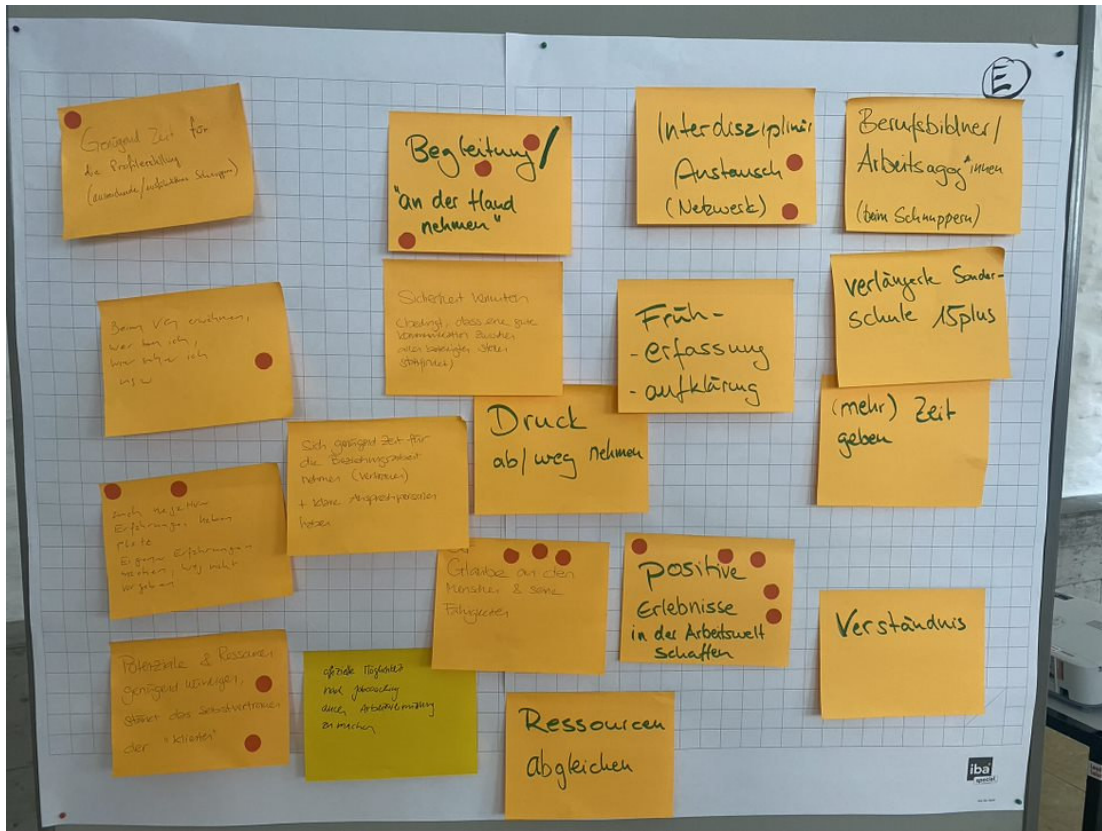 E
Genügend Zeit für
die Profilerstellung
Begleitung/
"an der Hand
nehmen"
Interdisziplinär
Austausch
(Netzwerk)
Berufsbildner/
Arbeitsagog*innen
(beim Schnuppern)
Beim VG erwähnen,
wer bin ich,
wer ich
usw
Sicherheit vermitteln
(bedingt, dass eine gute
Kommunikation zwischen
allen beteiligten Stellen
stattfindet)
Früh-
- erfassung
- aufklärung
verlängerte Sonder-
schule 15plus
Sich genügend Zeit für
die Beziehungsarbeit
nehmen (Vertrauen)
+ klare Ansprechpersonen
haben
Druck
ab/weg nehmen
(mehr) Zeit
geben
auch negative
Erfahrungen haben
Platz
Eigene Erfahrungen
machen, weg nicht
vorgeben
Glaube an den
Menschen & seine
Fähigkeiten
positive
Erlebnisse
in der Arbeitswelt
schaffen
Verständnis
Potenziale & Ressourcen
genügend würdigen,
stärkt das Selbstvertrauen
der "Klienten"
offizielle Möglichkeit
durch Arbeitsvermittlung
zu machen
Ressourcen
abgleichen
iba
special